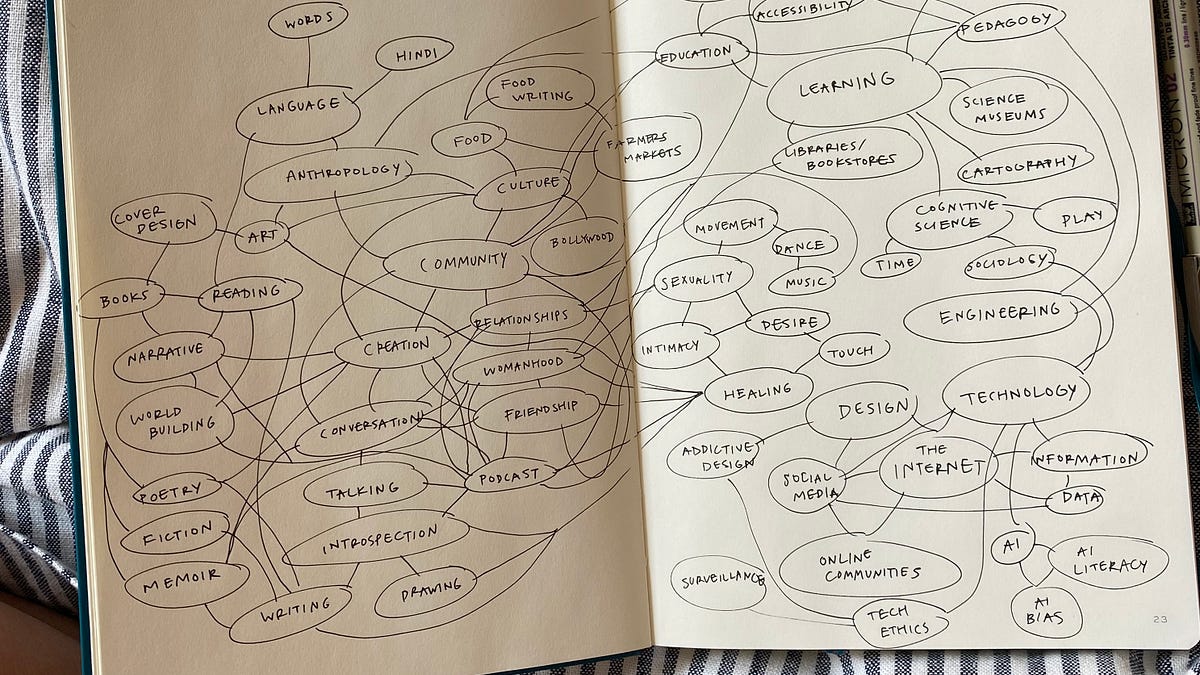 WORDS
HINDI
LANGUAGE
FOOD
WRITING
FOOD
ANTHROPOLOGY
CULTURE
COVER
DESIGN
ART
BOLLYWOOD
COMMUNITY
BOOKS
READING
RELATIONSHIPS
NARRATIVE
CREATION
WOMANHOOD
WORLD
BUILDING
CONVERSATION
FRIENDSHIP
POETRY
TALKING
PODCAST
FICTION
INTROSPECTION
MEMOIR
WRITING
DRAWING
ACCESSIBILITY
PEDAGOGY
EDUCATION
LEARNING
SCIENCE
MUSEUMS
FARMERS
MARKETS
LIBRARIES/
BOOKSTORES
CARTOGRAPHY
MOVEMENT
COGNITIVE
SCIENCE
PLAY
DANCE
TIME
SOCIOLOGY
SEXUALITY
MUSIC
ENGINEERING
DESIRE
INTIMACY
TOUCH
HEALING
DESIGN
TECHNOLOGY
ADDICTIVE
DESIGN
THE
INTERNET
INFORMATION
SOCIAL
MEDIA
DATA
AI
AI
LITERACY
ONLINE
COMMUNITIES
SURVEILLANCE
AI
BIAS
TECH
ETHICS
23
MICRON 02